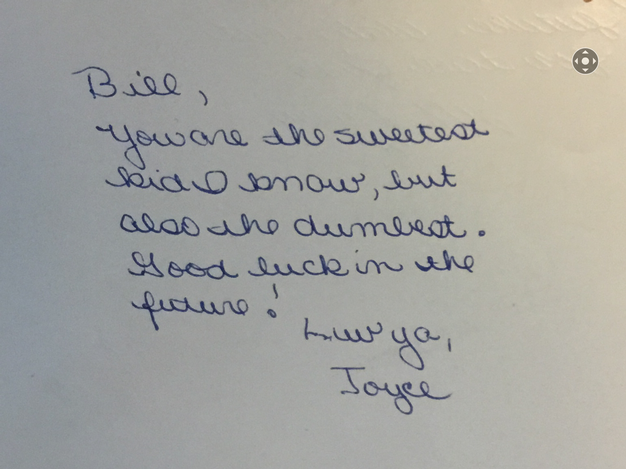 Bill,
You are the sweetest
kid I know, but
also the dumbest.
Good luck in the
future!
Luv ya,
Joyce